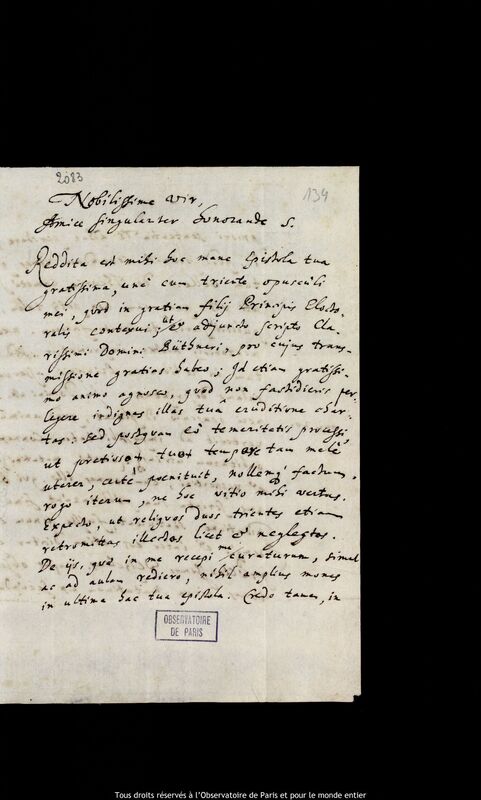 2083
134
Nobilissime Vir,
Amice singulariter honorande S.
Reddita est mihi hoc mane Epistola tua
gratissima, unà cum triente opusculi
mei, quod in gratiam filij Principis Electo-
ralis contexui, ut et adjuncto scripto Cla-
rissimi Domini Büthneri, pro cujus trans-
missione gratias habeo; Id etiam gratissi-
mo animo agnosco, quod non fastidieris per-
legere indignas illas tuâ eruditione char-
tas: sed postquam eò temeritatis processi,
ut pretioso tuo tempore tam malè
uterer, certè poenituit, nollemq; factum,
rogo iterum, ne hoc vitio mihi vertas.
Expecto, ut reliquos duos trientes etiam
retromittas illectos licet et neglectos.
De ijs, quae in me recepi curaturum, simul
me
ac ad aulam rediero, nihil amplius mones
in ultima hac tua epistola. Credo tamen, in
OBSERVATOIRE
DE PARIS
Tous droits réservés à l'Observatoire de Paris et pour le monde entier